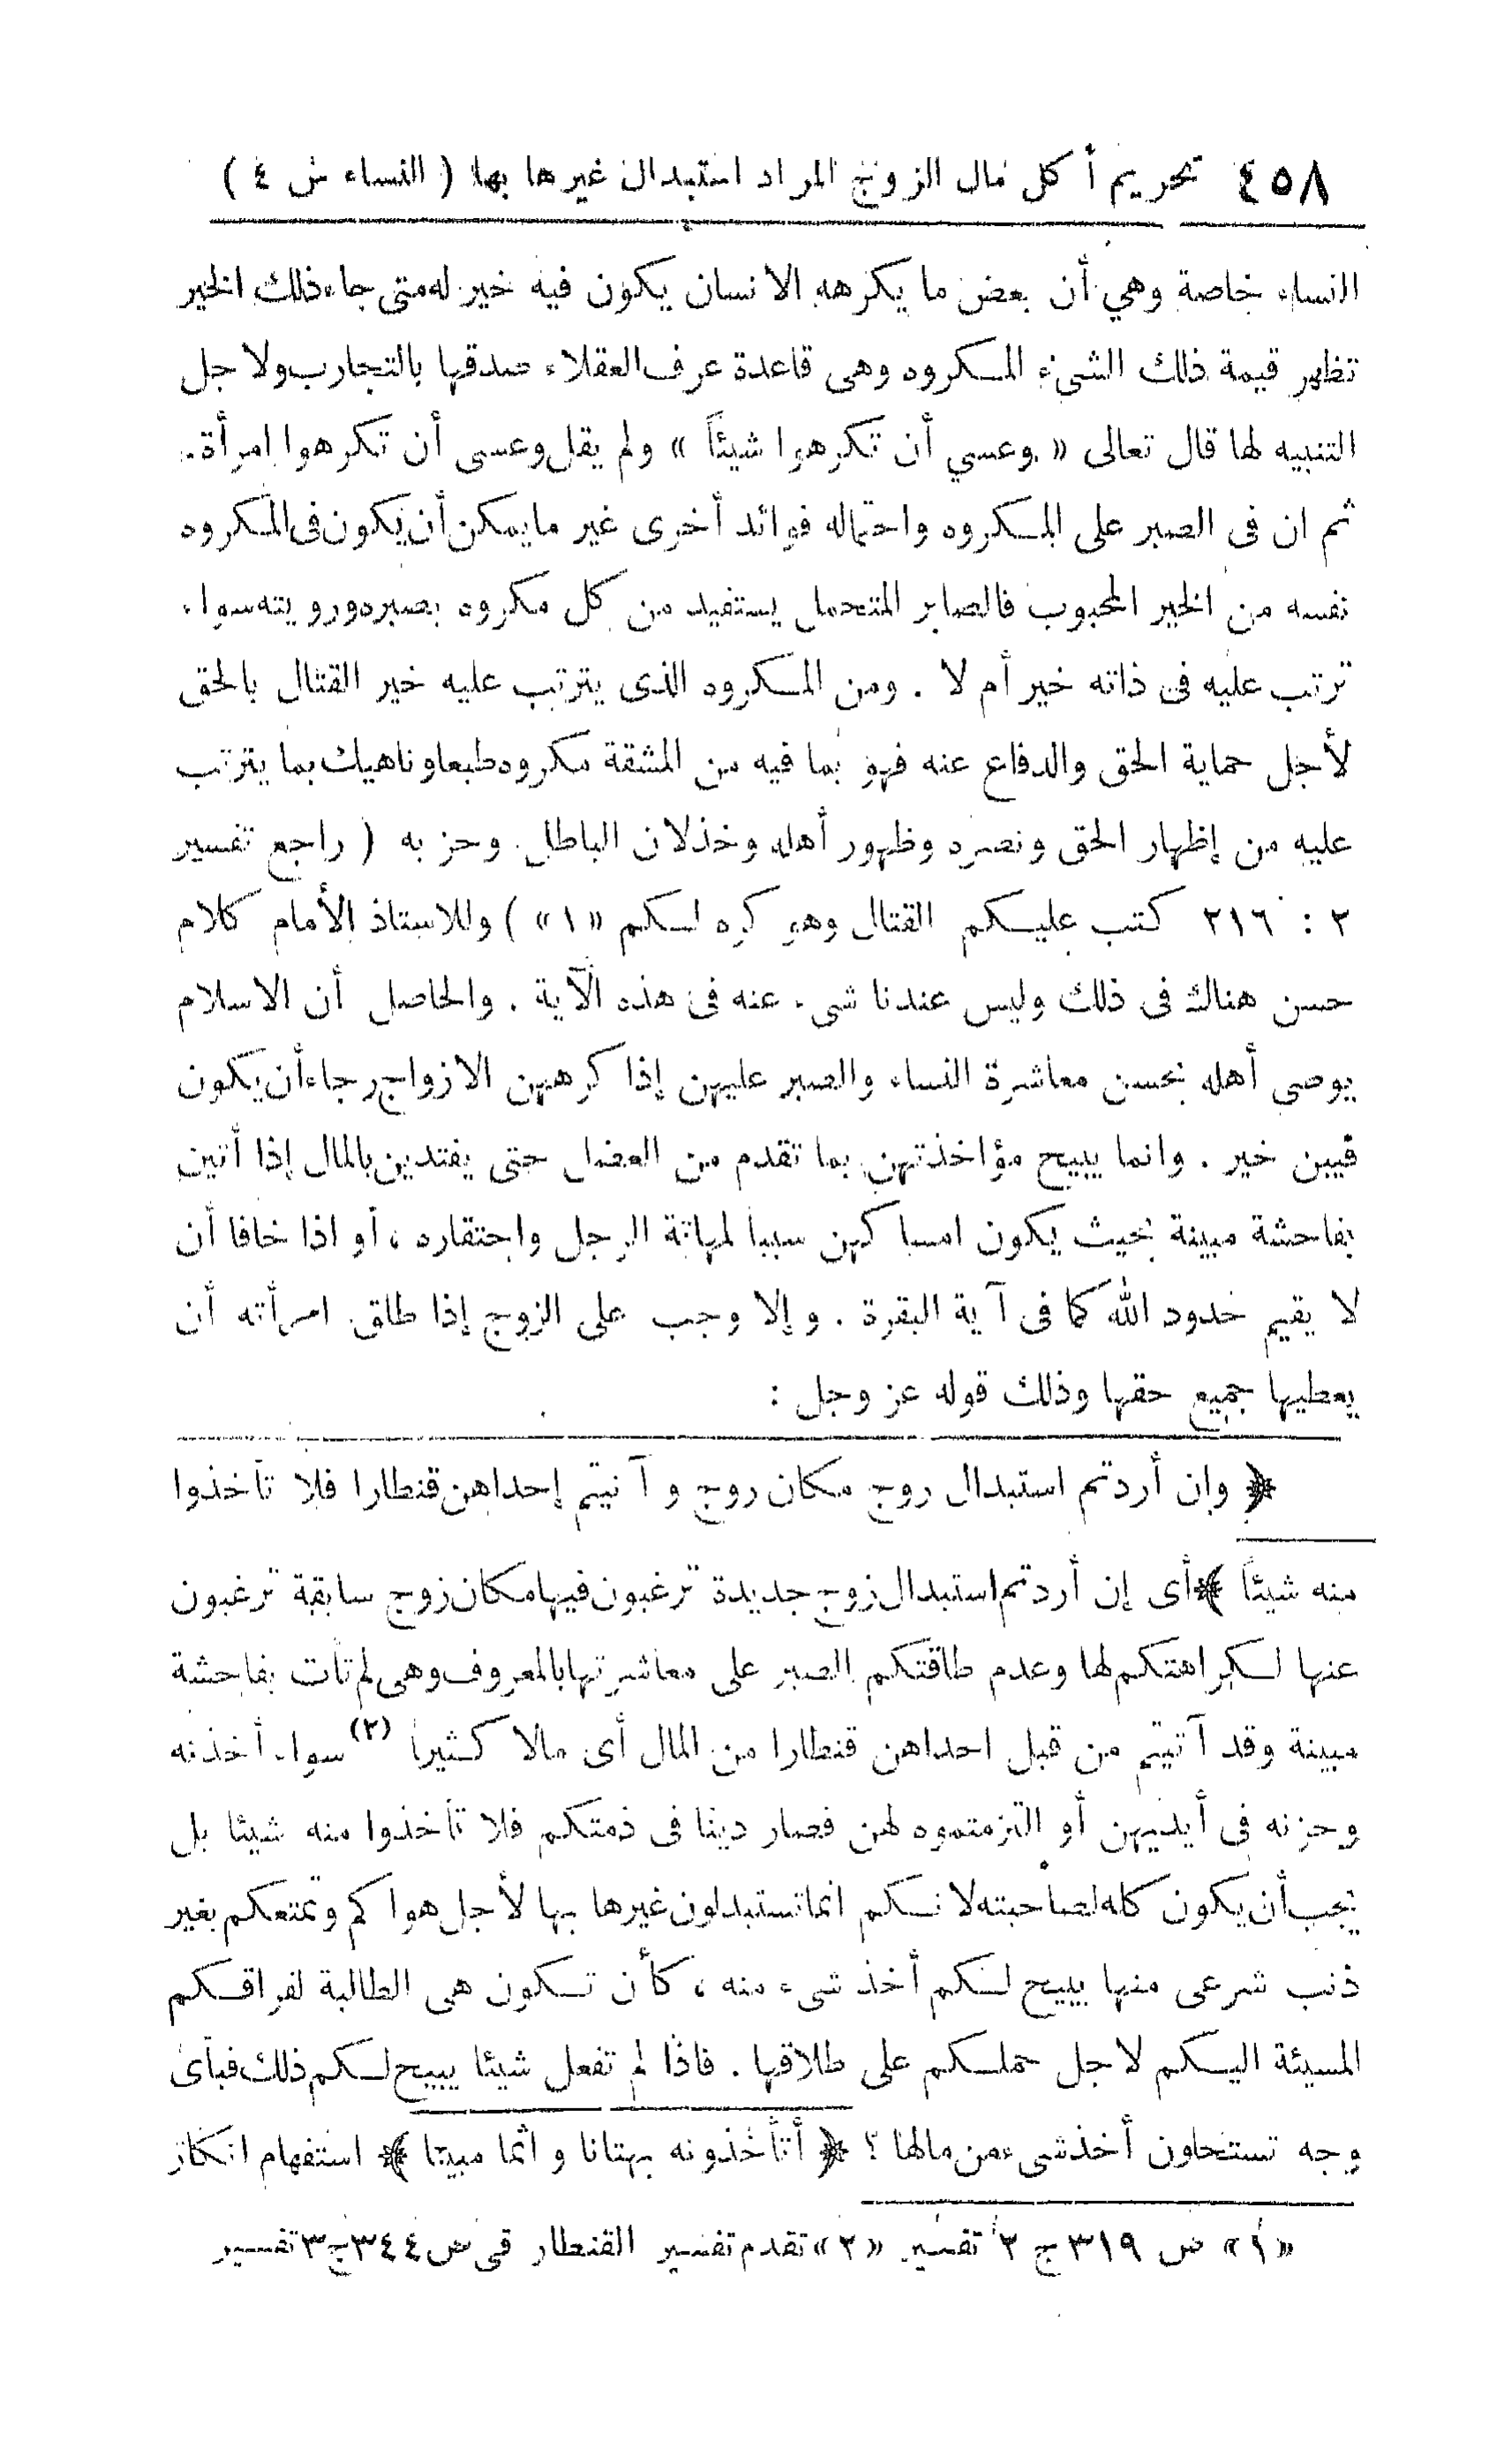 ٤٥٨ تحريم أكل مال الزوج المراد استبدال غيرها بها ( النساء س ٤ )
النساء خاصة وهي أن بعض ما يكرهه الانسان يكون فيه خير له متى جاء ذلك الخير
تظهر قيمة ذلك الشىء المكروه وهى قاعدة عرف العقلاء صدقها بالتجارب ولاجل
التنبيه لها قال تعالى « وعسي أن تكرهوا شيئاً » ولم يقل وعسى أن تكرهوا امرأة.
ثم ان فى الصبر على المكروه واحتماله فوائد أخرى غير ما يمكن أن يكون فى المكروه
نفسه من الخير المحبوب فالصابر المتحمل يستفيد من كل مكروه بصبره ورويته سواء
ترتب عليه فى ذاته خير أم لا . ومن المكروه الذى يترتب عليه خير القتال بالحق
لأجل حماية الحق والدفاع عنه فهو بما فيه من المشقة مكروه طبعا وناهيك بما يترتب
عليه من إظهار الحق ونصره وظهور أهله وخذلان الباطل وحزبه ( راجع تفسير
٢ : ٢١٦ كتب عليكم القتال وهو كره لكم «١» ) وللاستاذ الأمام كلام
حسن هناك فى ذلك وليس عندنا شىء عنه فى هذه الآية . والحاصل أن الاسلام
يوصى أهله بحسن معاشرة النساء والصبر عليهن إذا كرههن الازواج رجاء أن يكون
فيهن خير . وانما يبيح مؤاخذتهن بما تقدم من العضل حتى يفتدين بالمال إذا أتين
بفاحشة مبينة بحيث يكون امساكهن سببا لمهانة الرجل واحتقاره ، أو اذا خافا أن
لا يقيم حدود الله كما فى آية البقرة . وإلا وجب على الزوج إذا طلق امرأته أن
يعطيها جميع حقها وذلك قوله عز وجل :
﴿ وإن أردتم استبدال زوج مكان زوج وآتيتم إحداهن قنطارا فلا تأخذوا
منه شيئاً ﴾ أى إن أردتم استبدال زوج جديدة ترغبون فيها مكان زوج سابقة ترغبون
عنها لكراهتكم لها وعدم طاقتكم الصبر على معاشرتها بالمعروف وهى لم تأت بفاحشة
مبينة وقد آتيتم من قبل احداهن قنطارا من المال أى مالا كثيرا (٢) سواء أخذنه
وحزنه فى أيديهن أو التزمتموه لهن فصار دينا فى ذمتكم فلا تأخذوا منه شيئا بل
يجب أن يكون كله لصاحبته لانكم انما تستبدلون غيرها بها لأجل هواكم وتمتعكم بغير
ذنب شرعى منها يبيح لكم أخذ شىء منه ، كأن تكون هى الطالبة لفراقكم
المسيئة اليكم لاجل حملكم على طلاقها . فاذا لم تفعل شيئا يبيح لكم ذلك فبأى
وجه تستحلون أخذ شىء من مالها ؟ ﴿ أتأخذونه بهتانا واثما مبينا ﴾ استفهام انكار
«١» ص ٣١٩ ج ٢ تفسير «٢» تقدم تفسير القنطار فى ص ٣٤٤ ج ٣ تفسير